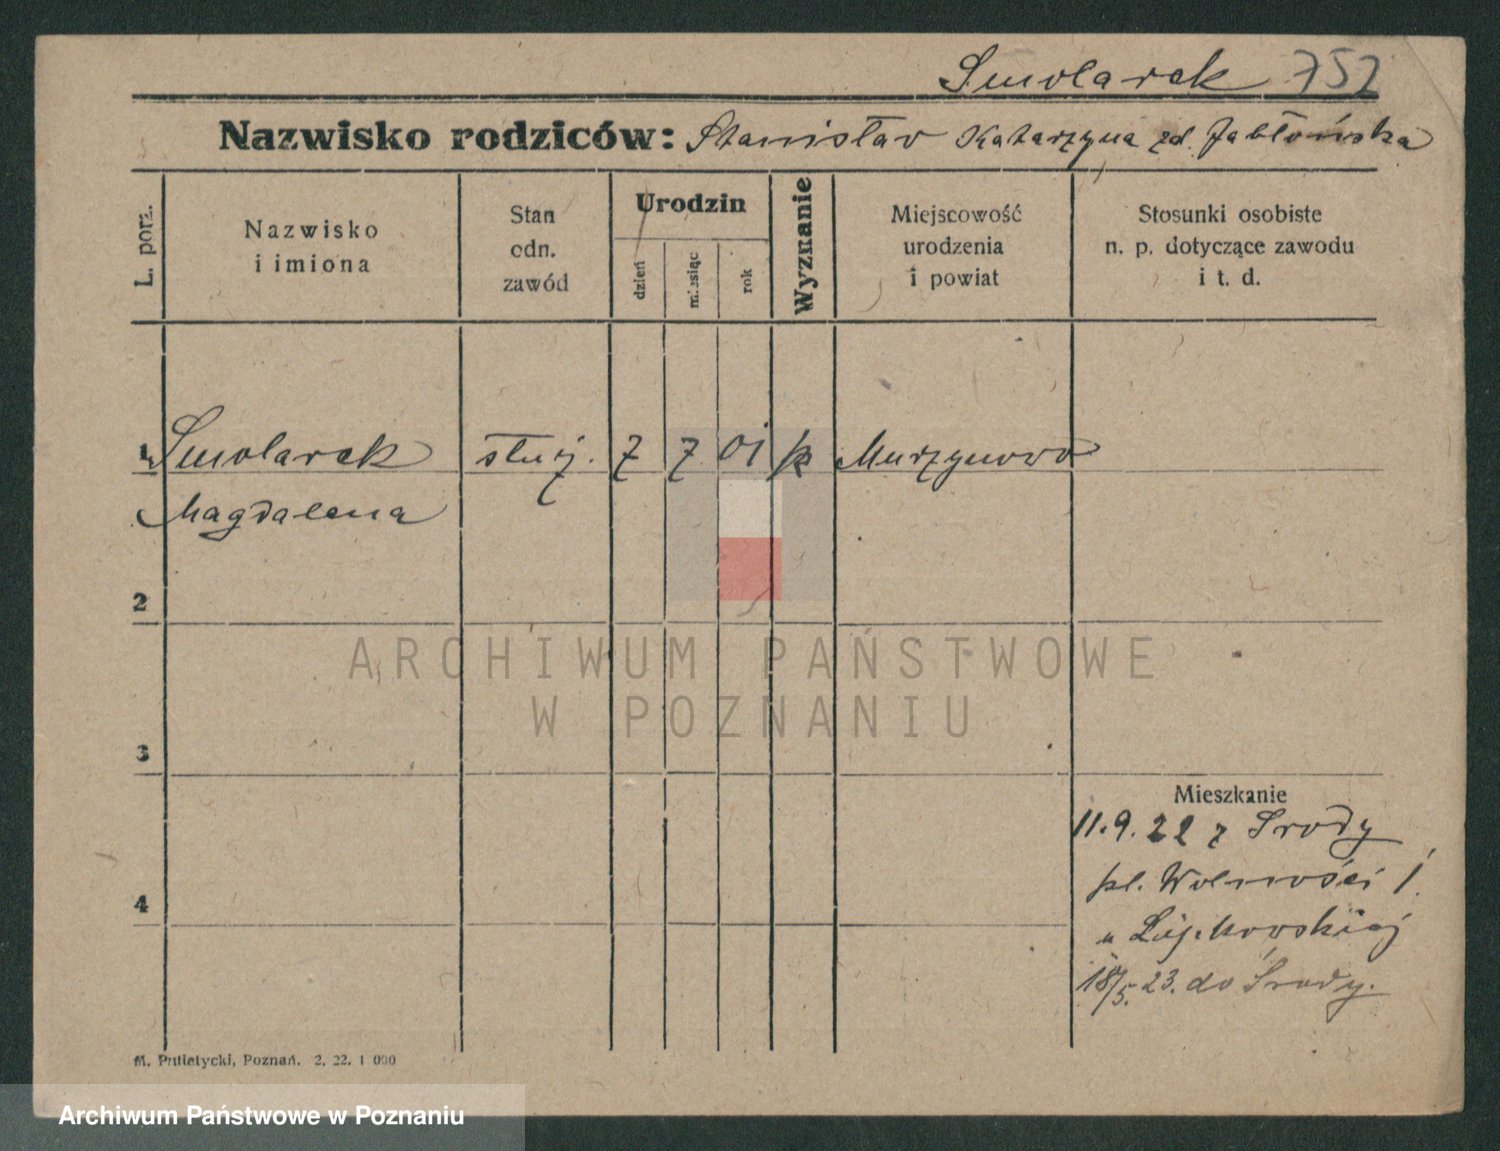 Smolarek 752
Nazwisko rodziców: Stanisław Katarzyna zd. Jabłońska
L. porz.
Nazwisko
i imiona
Stan
odn.
zawód
Urodzin
dzień
miesiąc
rok
Wyznanie
Miejscowość
urodzenia
i powiat
Stosunki osobiste
n. p. dotyczące zawodu
i t. d.
1 Smolarek służ. 7 7 01 k Murzynowo
Magdalena
2
ARCHIWUM PAŃSTWOWE
W POZNANIU
3
Mieszkanie
11.9.22 z Środy
pl. Wolności 1.
4
u
18/5. 23. do Środy.
M. Putiatycki, Poznań. 2. 22. 1 000
Archiwum Państwowe w Poznaniu